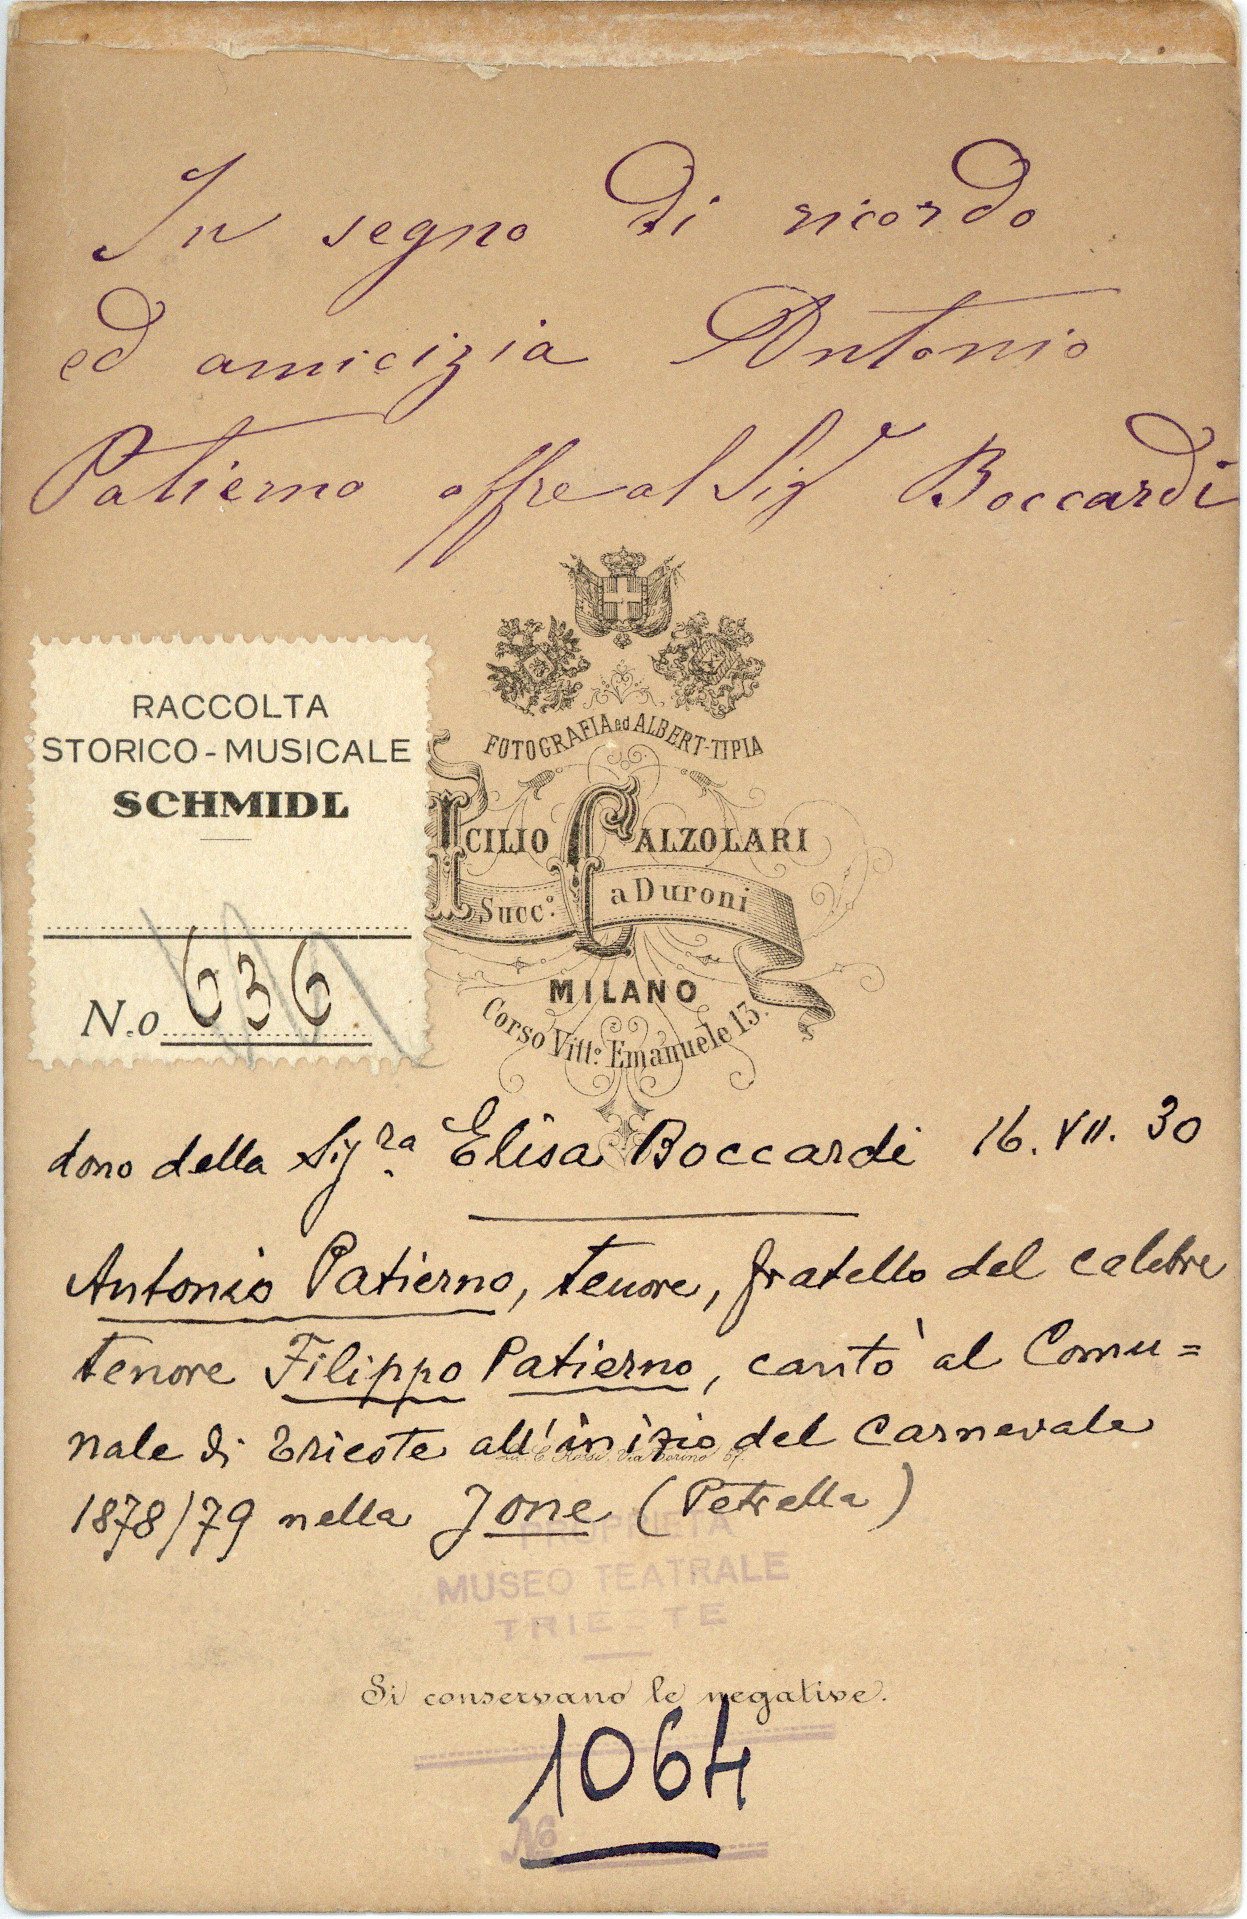 In segno di ricordo
ed amicizia Antonio
Patierno offre al Sigr Boccardi
FOTOGRAFIA ed ALBERT-TIPIA
ICILIO CALZOLARI
Succ.o a Duroni
MILANO
Corso Vitt.o Emanuele 13.
RACCOLTA
STORICO-MUSICALE
SCHMIDL
N.o 636
dono della Sigra Elisa Boccardi 16. VII. 30
Antonio Patierno, tenore, fratello del celebre
tenore Filippo Patierno, cantò al Comu=
nale di Trieste all'inizio del Carnevale
1878/79 nella Jone (Petrella)
PROPRIETÀ
MUSEO TEATRALE
TRIESTE
Si conservano le negative.
1064
No